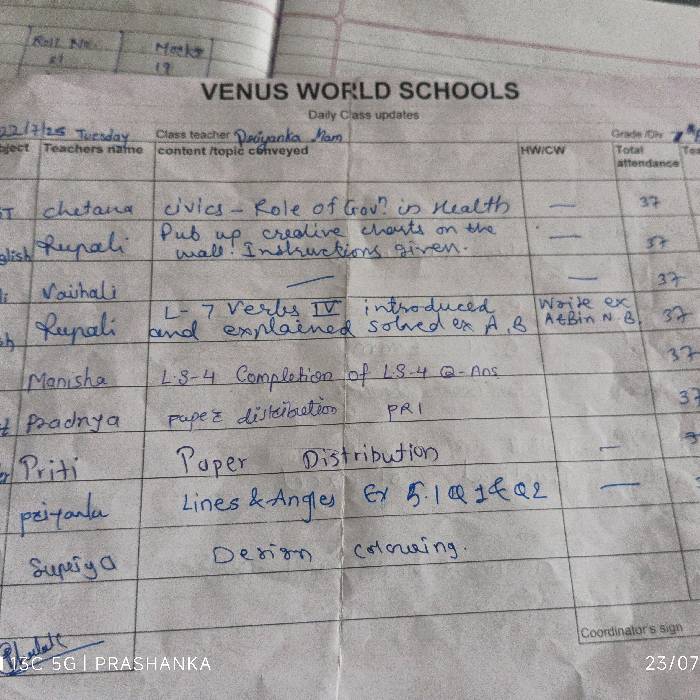 Roll No. Marks
51 19
VENUS WORLD SCHOOLS
Daily Class updates
22/7/25 Tuesday Class teacher Priyanka Mam Grade /Div
bject Teachers name content /topic conveyed HW/CW Total attendance Tea
ST chetana civics - Role of Govn. in Health — 37
glish Rupali Put up creative charts on the — 37
wall. Instructions given.
di Vaishali — — 37
sh Rupali L- 7 Verbs IV introduced Write ex 37
and explained solved ex A, B A & B in N.B.
Manisha L.S-4 Completion of L.S-4 Q-Ans 37
Pradnya paper distribution PRI 37
Priti Paper Distribution —
priyanka Lines & Angles Ex 5.1 Q 1 & Q2 —
Supriya Design colouring.
Coordinator's sign
13C 5G | PRASHANKA 23/07